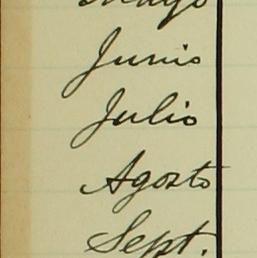 Mayo
Junio
Julio
Agosto
Sept.